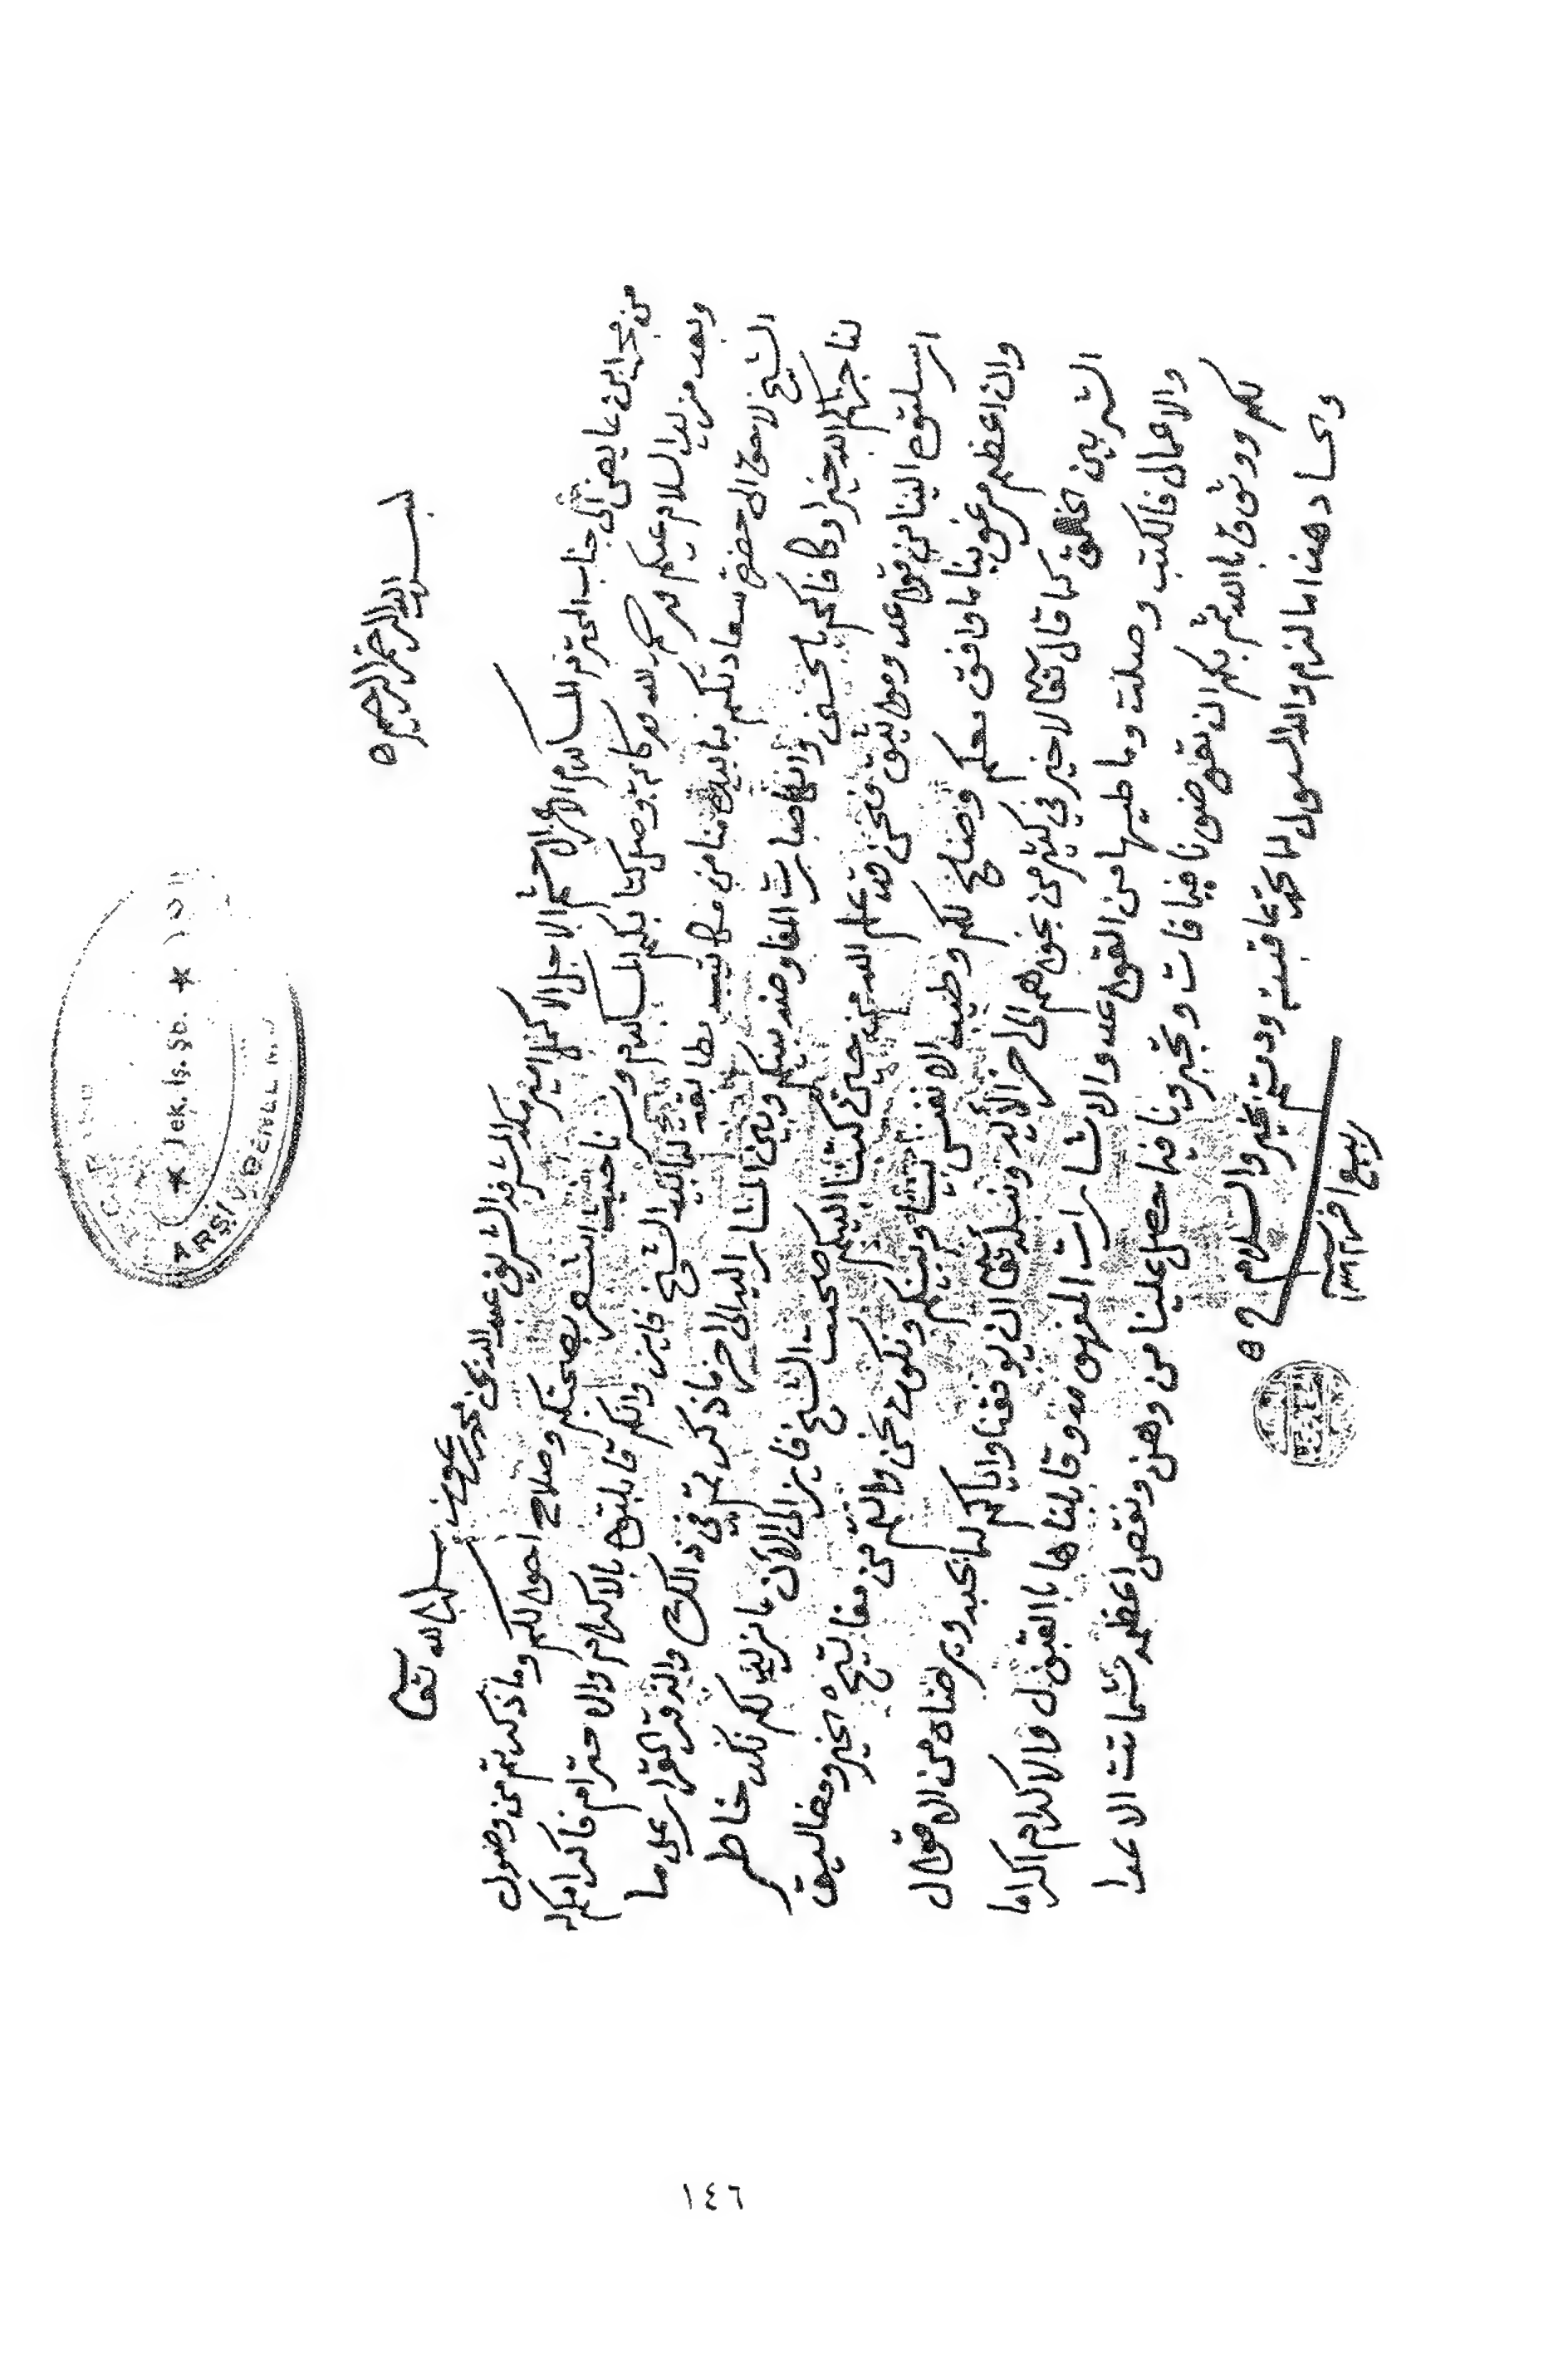 بسم الله الرحمن الرحيم
من محمد ابن عايض الى جناب المحترم المكرم الافخم الاحشم الاجل الاكمل امير مكة المشرفة الشريف عبد الله بن محمد بن عون سلمه الله تعالى
وبعد مزيد السلام عليكم ورحمة الله وبركاته وصل كتابكم المكرم وسرنا حيث اشعر بصحتكم وصلاح احوالكم وما ذكرتم من وصول
الشيخ لاحق الى حضرة سعادتكم بما بيده منا من مكاتيب مطابقة لما بيد الشيخ فايز وانكم قابلتوه بالاكرام والاحترام فاكرامكم له
لنا جزاكم الله خيرا وكافاكم بالحسنى وانها صارت المفاوضة بينكم وبين المشار اليه الى اخر ما ذكرتم في ذالك والذ قر القرار على ما
ارسلتوه الينا من قواعد ومواثيق فنحن قد علم الله من حين كتبنا اليكم صحبت الشيخ فايز الى الآن ما نريد لكم نكد خاطر
وان اعظم مرغوبنا ما وافق معكم وصلح لكم وطيب الانفس بيننا وبينكم ونكون نحن وانتم من مفاتيح الخير ومغاليق
الشر بين الخلق كما قال تعالى لا خير في كثير من نجواهم الى اخر الآية ونسأله تعالى ان يوفقنا واياكم لما يحبه ويرضاه من الاقوال
والاعمال فالكتب وصلت وما طيها من القواعد والاشارات المفهومة وقابلناها بالقبول والاكرام اكراما
لكم ووثوقا بالله ثم بكم ان تعوضونا فيما فات وتجبرونا فيما حصل علينا من وهن ونقص اعظمه شماتت الاعدا
والحساد هذا ما لزم والله المسول لنا حمد عاقبته ودمتم بخير والسلام
ربيع اخر سنة
Jek. Is. Sb.
ARŞİV
١٤٦